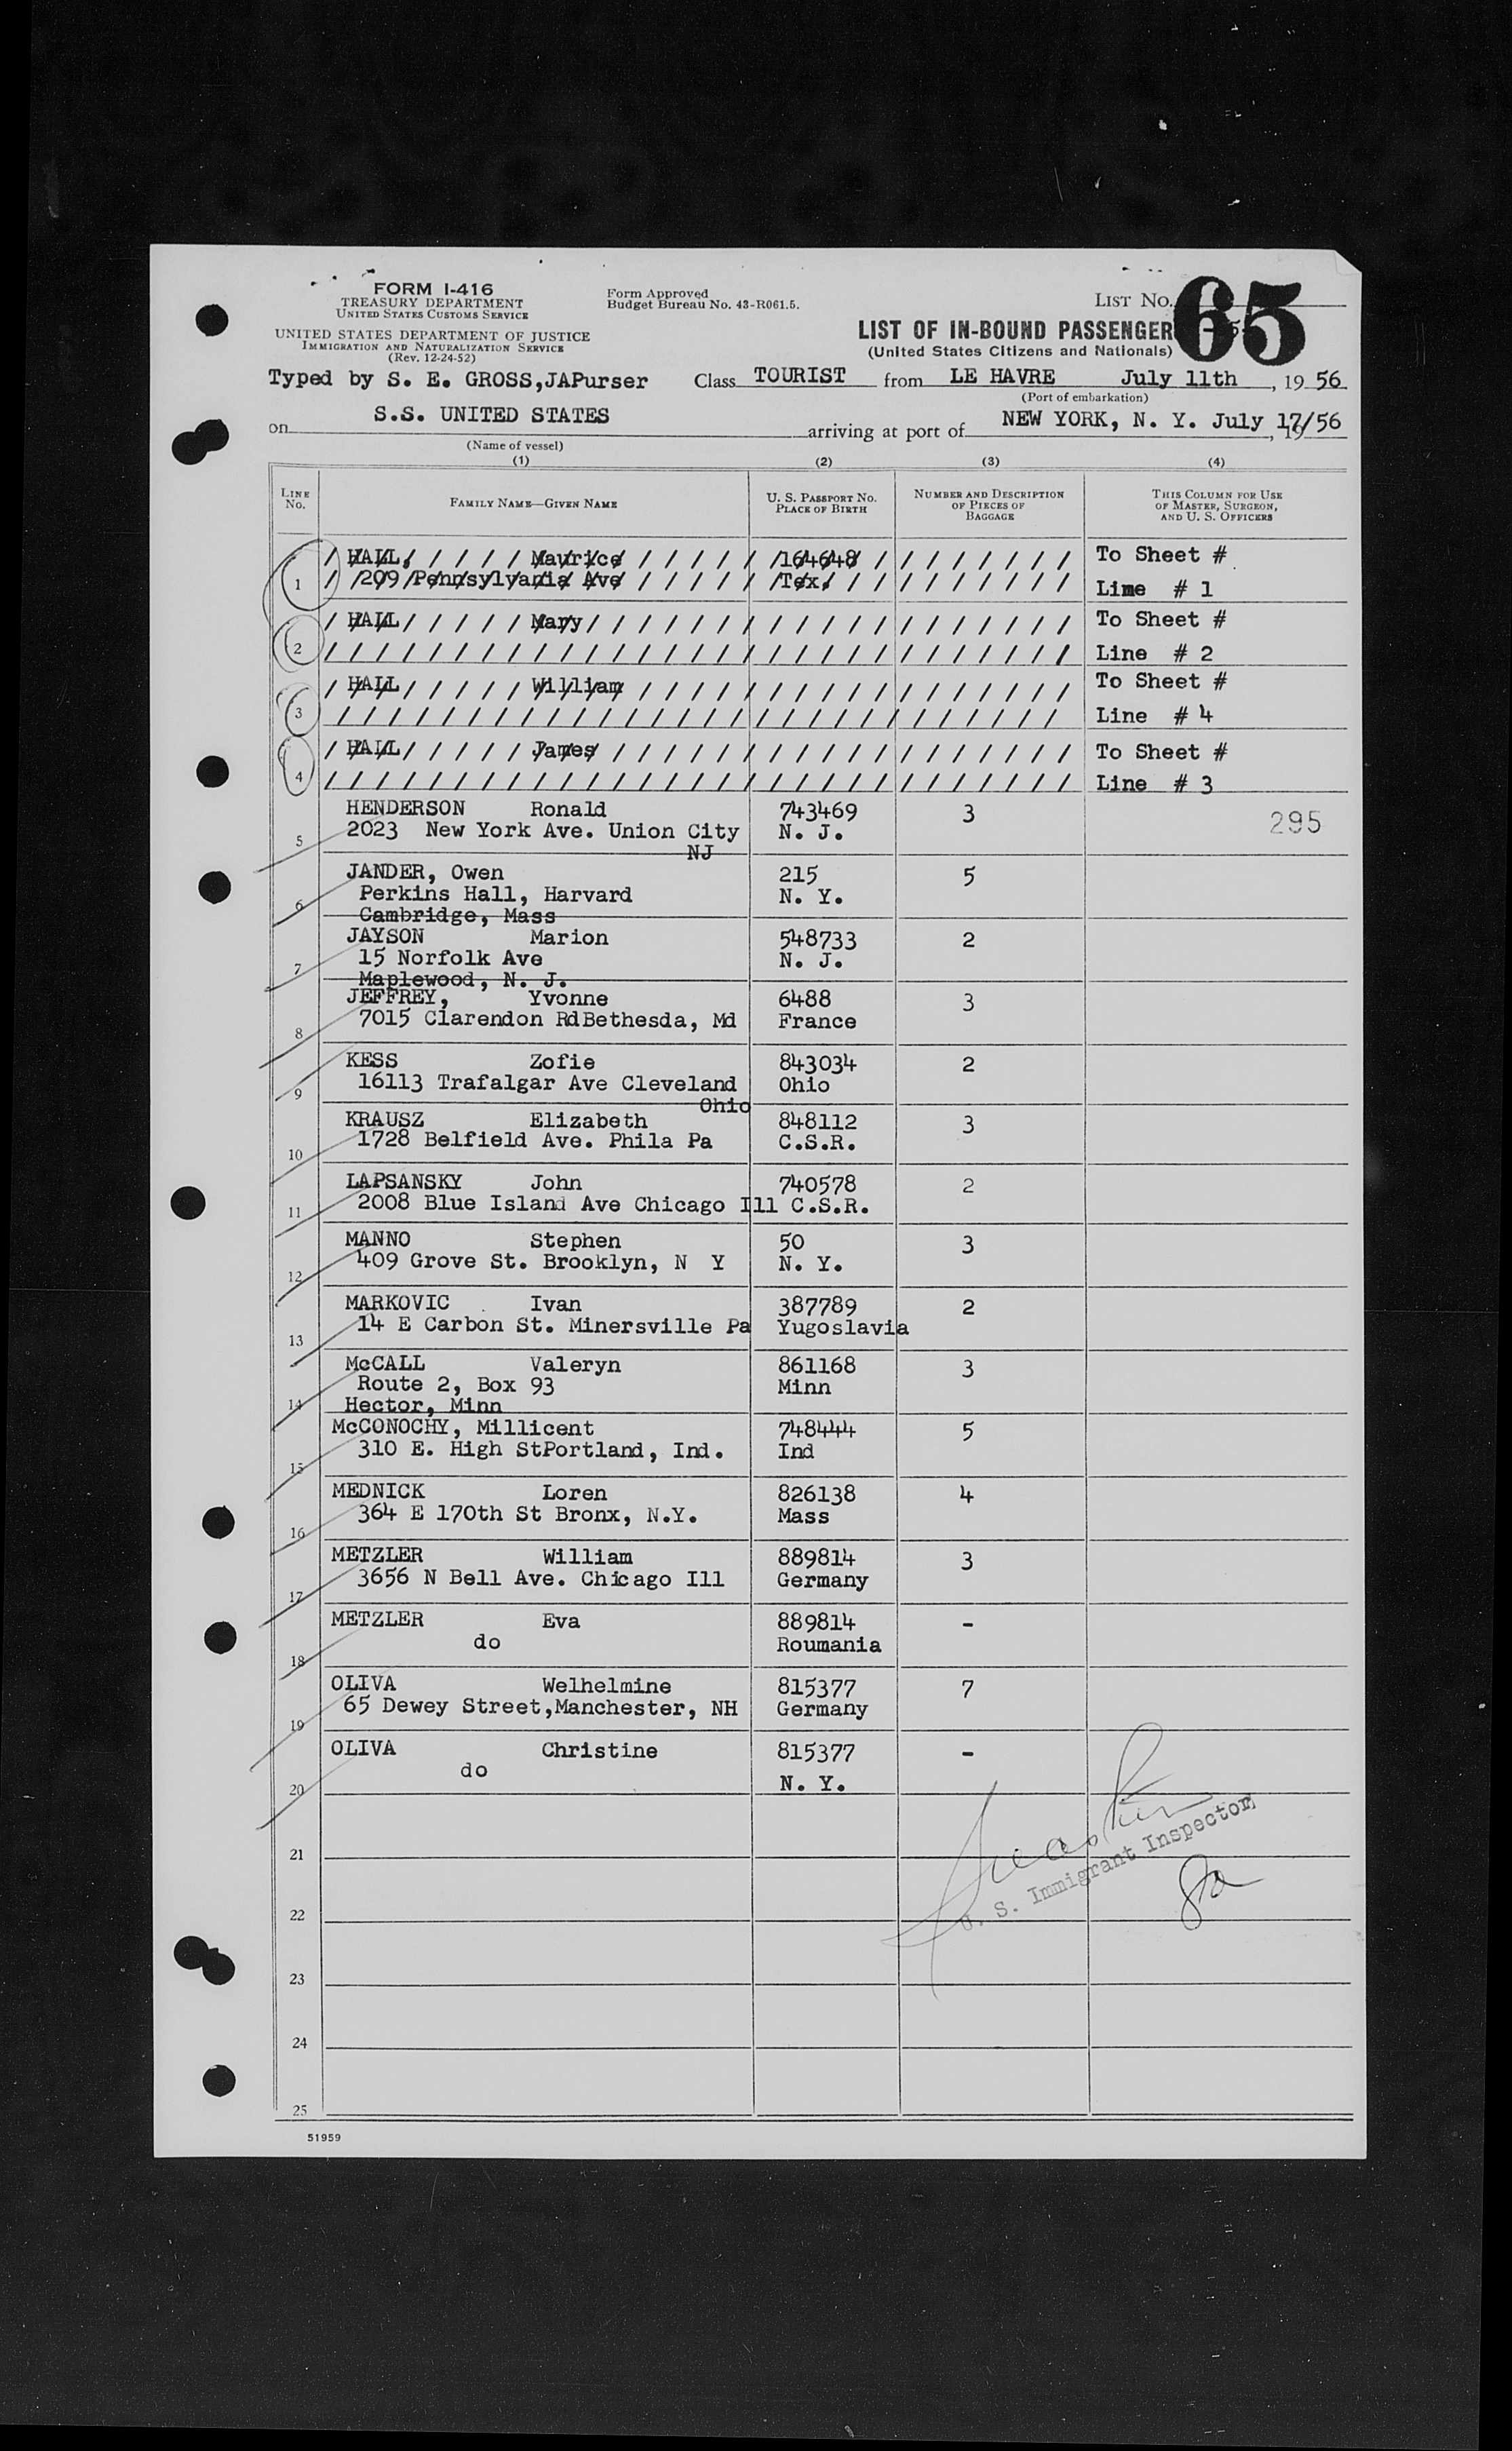 FORM I-416
TREASURY DEPARTMENT
UNITED STATES CUSTOMS SERVICE
UNITED STATES DEPARTMENT OF JUSTICE
IMMIGRATION AND NATURALIZATION SERVICE
(Rev. 12-24-52)
Form Approved
Budget Bureau No. 43-R061.5.
LIST NO. 65
LIST OF IN-BOUND PASSENGER
(United States Citizens and Nationals)
Typed by S. E. GROSS,JAPurser Class TOURIST from LE HAVRE July 11th, 19 56
(Port of embarkation)
on S.S. UNITED STATES arriving at port of NEW YORK, N. Y. July 17/56, 19
(Name of vessel)
(1) (2) (3) (4)
LINE No. FAMILY NAME—GIVEN NAME U. S. PASSPORT NO. PLACE OF BIRTH NUMBER AND DESCRIPTION OF PIECES OF BAGGAGE THIS COLUMN FOR USE OF MASTER, SURGEON, AND U. S. OFFICERS
1 HALL, Maurice 164648 To Sheet #
209 Pennsylvania Ave Tex. Lime # 1
2 HALL Mary To Sheet #
Line # 2
3 HALL William To Sheet #
Line # 4
4 HALL James To Sheet #
Line # 3
5 HENDERSON Ronald 743469 3 295
2023 New York Ave. Union City N. J.
NJ
6 JANDER, Owen 215 5
Perkins Hall, Harvard N. Y.
Cambridge, Mass
7 JAYSON Marion 548733 2
15 Norfolk Ave N. J.
Maplewood, N. J.
8 JEFFREY, Yvonne 6488 3
7015 Clarendon RdBethesda, Md France
9 KESS Zofie 843034 2
16113 Trafalgar Ave Cleveland Ohio
Ohio
10 KRAUSZ Elizabeth 848112 3
1728 Belfield Ave. Phila Pa C.S.R.
11 LAPSANSKY John 740578 2
2008 Blue Island Ave Chicago Ill C.S.R.
12 MANNO Stephen 50 3
409 Grove St. Brooklyn, N Y N. Y.
13 MARKOVIC Ivan 387789 2
14 E Carbon St. Minersville Pa Yugoslavia
14 McCALL Valeryn 861168 3
Route 2, Box 93 Minn
Hector, Minn
15 McCONOCHY, Millicent 748444 5
310 E. High StPortland, Ind. Ind
16 MEDNICK Loren 826138 4
364 E 170th St Bronx, N.Y. Mass
17 METZLER William 889814 3
3656 N Bell Ave. Chicago Ill Germany
18 METZLER Eva 889814 -
do Roumania
19 OLIVA Welhelmine 815377 7
65 Dewey Street,Manchester, NH Germany
20 OLIVA Christine 815377 -
do N. Y.
21
U. S. Immigrant Inspector
22
23
24
25
51959